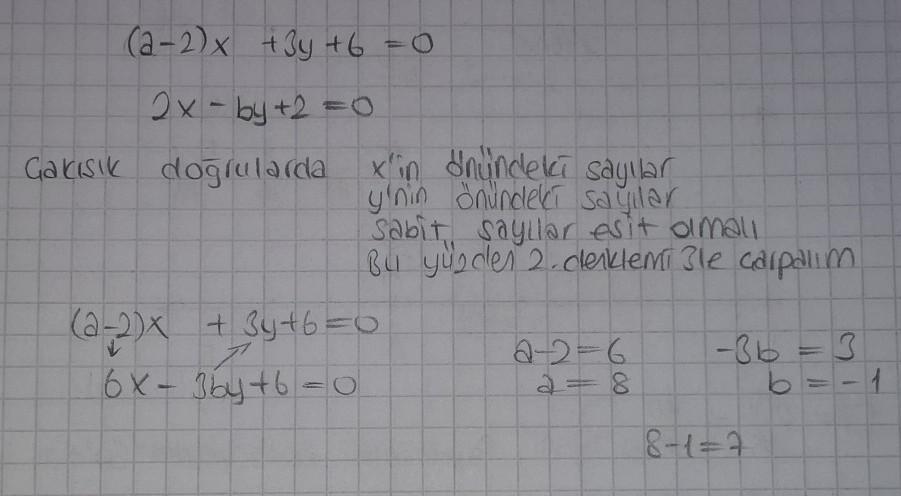 (a-2)x +3y+6=0
2x-by+2=0
Çakışık doğrularda x'in önündeki sayılar
y'nin önündeki sayılar
sabit sayılar eşit olmalı
Bu yüzden 2.denklemi 3le çarpalım
(a-2)x +3y+6=0
6x-3by+6=0
a-2=6 -3b=3
a=8 b=-1
8-1=7